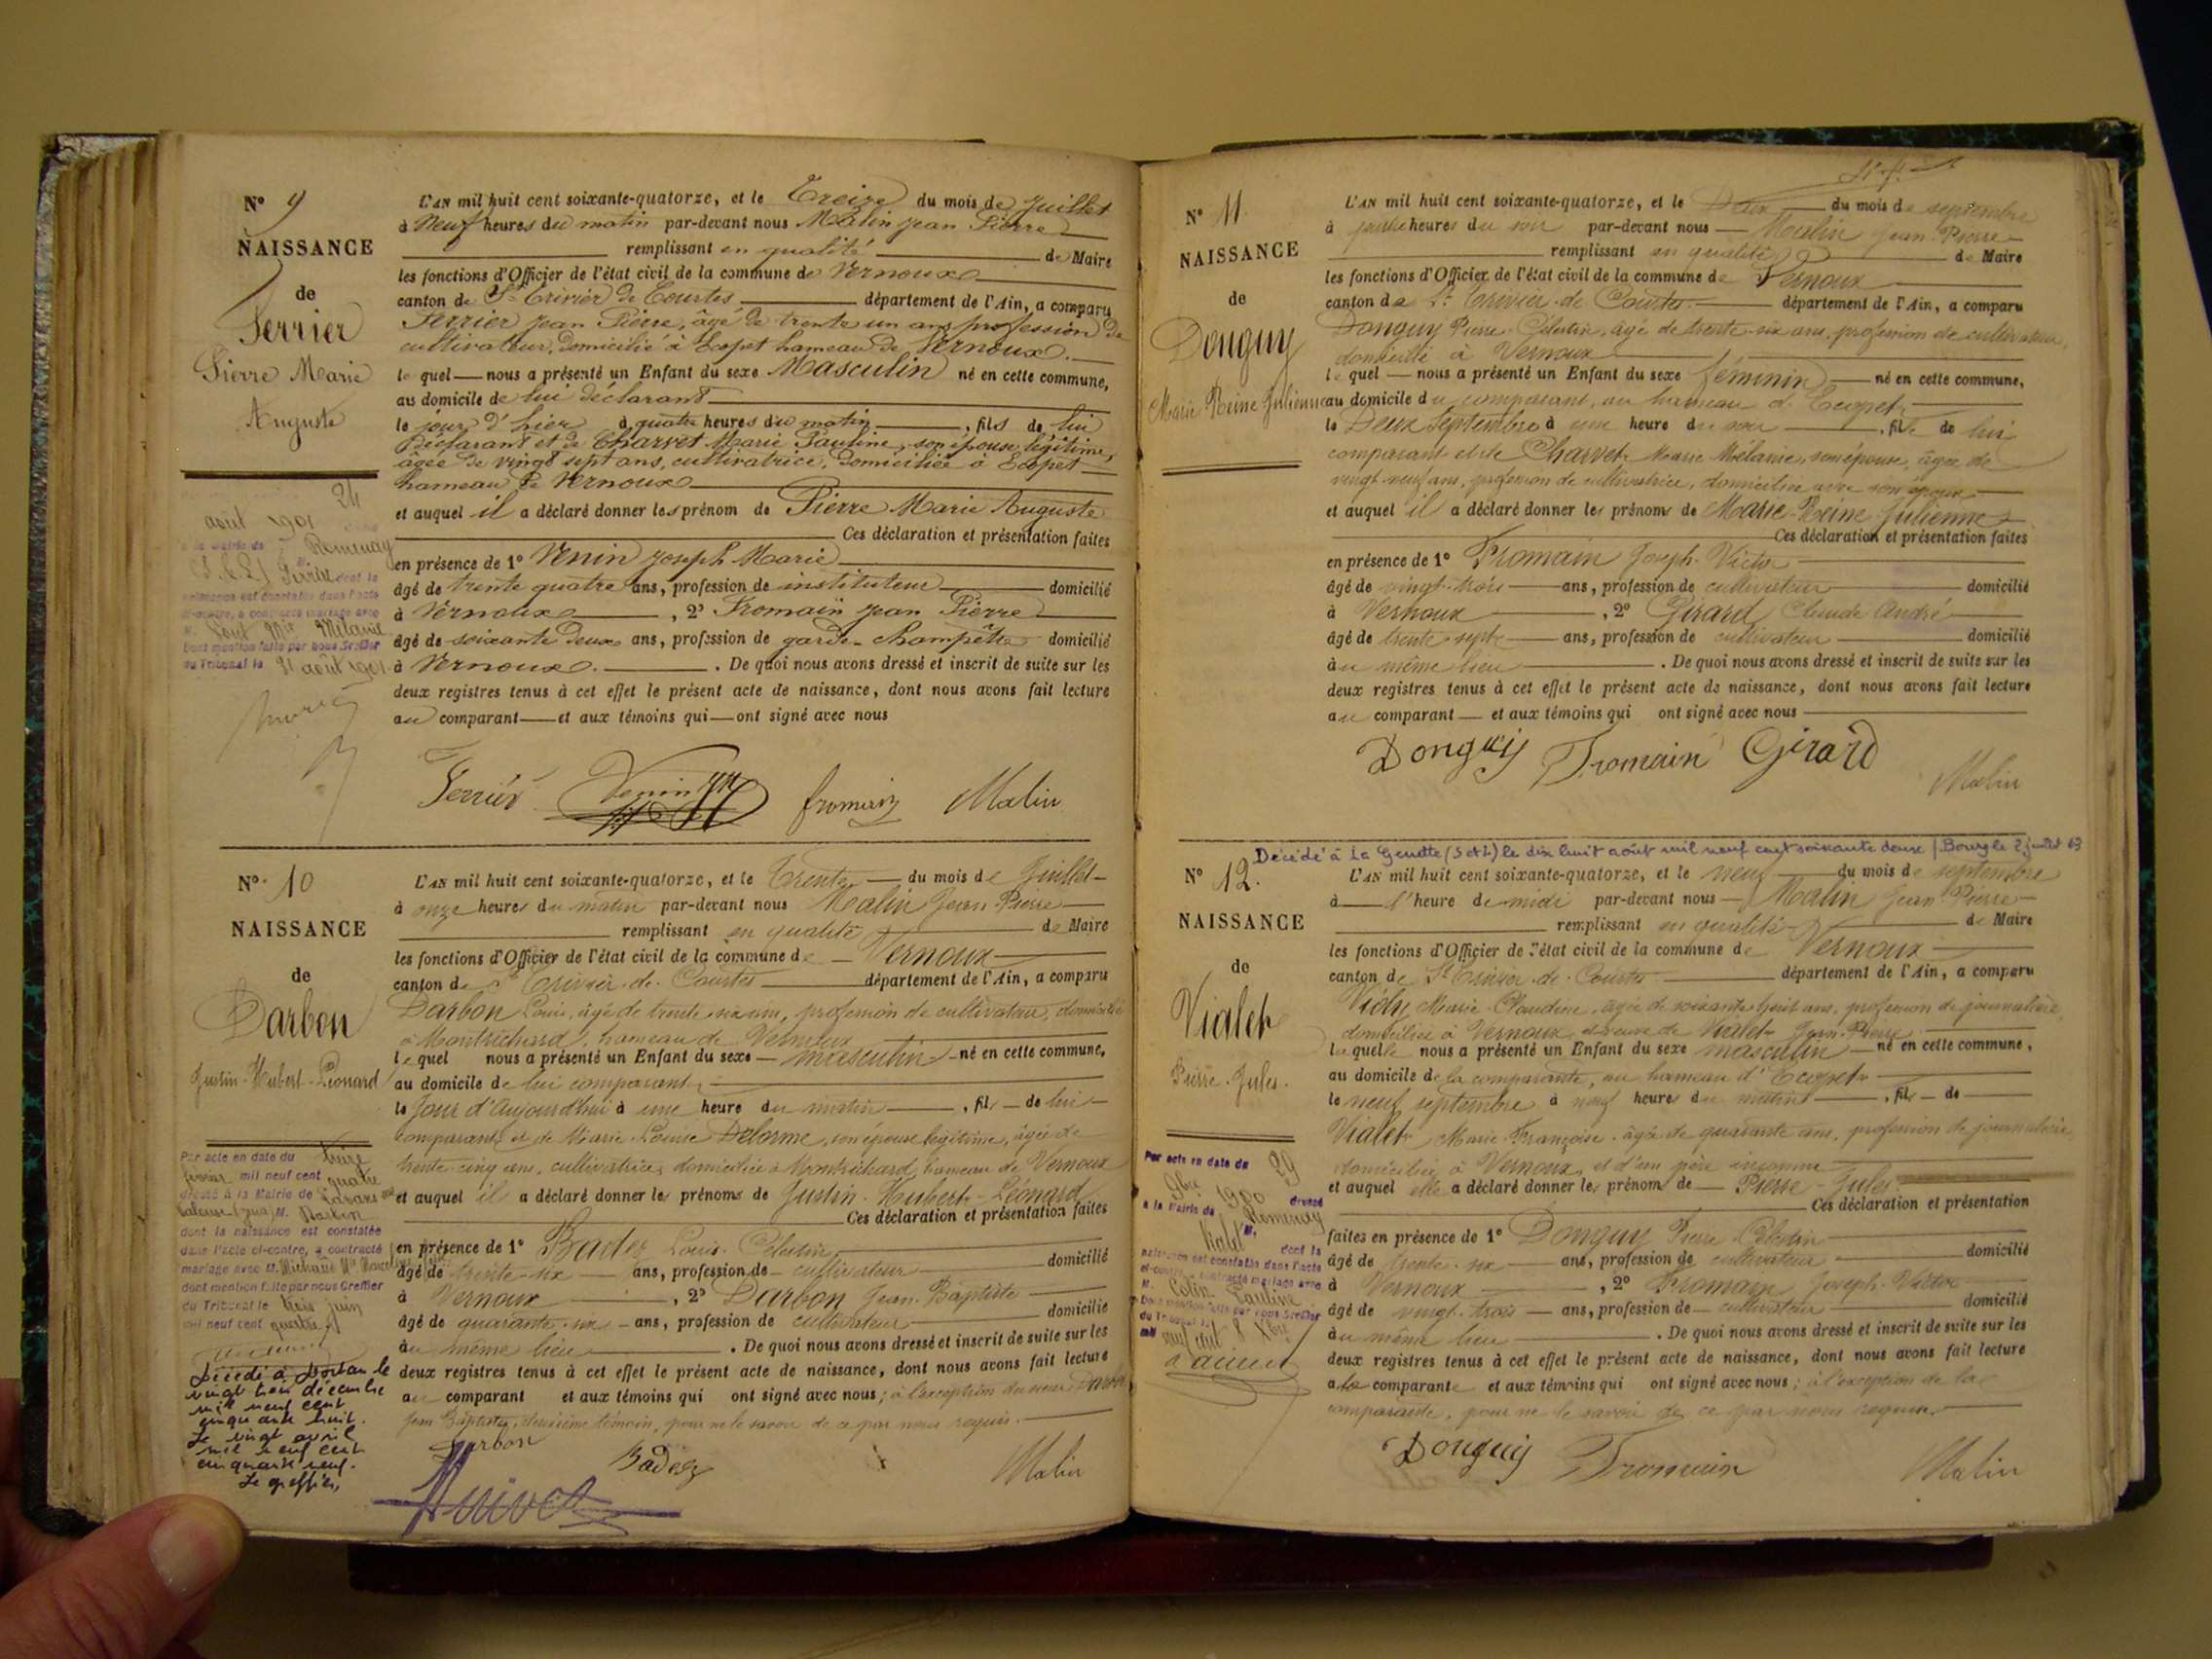 N° 9
NAISSANCE
de
Ferrier
Pierre Marie
Auguste
L'AN mil huit cent soixante-quatorze, et le Treize du mois de Juillet
à Neuf heures du matin par-devant nous Malin Jean Pierre
remplissant en qualité de Maire
les fonctions d'Officier de l'état civil de la commune de Vernoux
canton de St Trivier de Courtes département de l'Ain, a comparu
Ferrier Jean Pierre, âgé de trente un ans profession de
cultivateur, domicilié à Ecopet hameau de Vernoux.
le quel nous a présenté un Enfant du sexe Masculin né en cette commune,
au domicile de lui déclarant
le jour d'hier à quatre heures du matin, fils de lui
Déclarant et de Charvet Marie Pauline, son épouse légitime,
âgée de vingt sept ans, cultivatrice, domiciliée à Ecopet
hameau de Vernoux
et auquel il a déclaré donner les prénom de Pierre Marie Auguste
Ces déclaration et présentation faites
en présence de 1° Venin Joseph Marie
âgé de trente quatre ans, profession de instituteur domicilié
à Vernoux, 2° Fromain Jean Pierre
âgé de soixante deux ans, profession de garde-champêtre domicilié
à Vernoux. De quoi nous avons dressé et inscrit de suite sur les
deux registres tenus à cet effet le présent acte de naissance, dont nous avons fait lecture
au comparant et aux témoins qui ont signé avec nous
Ferrier Venin fromain Malin
24
août 1901
à la Mairie de Romenay
(S. & L.) Ferrier dont la
naissance est constatée dans l'acte
ci-contre, a contracté mariage avec
M. Mie Mélanie
Dont mention faite par nous Greffier
du Tribunal le 31 août 1901
N° 10
NAISSANCE
de
Darbon
Justin-Hubert-Léonard
L'AN mil huit cent soixante-quatorze, et le Trente du mois de Juillet
à onze heures du matin par-devant nous Malin Jean Pierre
remplissant en qualité de Maire
les fonctions d'Officier de l'état civil de la commune de Vernoux
canton de St Trivier de Courtes département de l'Ain, a comparu
Darbon Louis, âgé de trente six ans, profession de cultivateur, domicilié
à Montrichard, hameau de Vernoux
le quel nous a présenté un Enfant du sexe masculin né en cette commune,
au domicile de lui comparant
le Jour d'Aujourd'hui à une heure du matin, fils de lui
comparant et de Marie Louise Delorme, son épouse légitime, âgée de
trente cinq ans, cultivatrice, domiciliée à Montrichard hameau de Vernoux
et auquel il a déclaré donner les prénoms de Justin-Hubert-Léonard
Ces déclaration et présentation faites
en présence de 1° Badez Louis Célestin
âgé de trente-six ans, profession de cultivateur domicilié
à Vernoux, 2° Darbon Jean-Baptiste
âgé de quarante-six ans, profession de cultivateur domicilié
au même lieu. De quoi nous avons dressé et inscrit de suite sur les
deux registres tenus à cet effet le présent acte de naissance, dont nous avons fait lecture
au comparant et aux témoins qui ont signé avec nous; à l'exception du sieur Darbon
Jean Baptiste, deuxième témoin, pour ne le savoir de ce par nous requis.
Darbon Badez Malin
Par acte en date du treize
février mil neuf cent quatre
dressé à la Mairie de Lavans
(Jura) M. Darbon
dont la naissance est constatée
dans l'acte ci-contre, a contracté
mariage avec M.
dont mention faite par nous Greffier
du Tribunal le trois juin
mil neuf cent quatre
Décédé à Dortan le
vingt trois décembre
mil neuf cent
cinquante huit.
Le vingt avril
mil neuf cent
cinquante neuf.
Le greffier,
N° 11
NAISSANCE
de
Donguy
Marie Reine Julienne
L'AN mil huit cent soixante-quatorze, et le Deux du mois de septembre
à heures du soir par-devant nous Malin Jean Pierre
remplissant en qualité de Maire
les fonctions d'Officier de l'état civil de la commune de Vernoux
canton de St Trivier de Courtes département de l'Ain, a comparu
Donguy Pierre Célestin, âgé de trente-six ans, profession de cultivateur,
domicilié à Vernoux
le quel nous a présenté un Enfant du sexe féminin né en cette commune,
au domicile du comparant, au hameau d'Ecopet
le Deux Septembre à une heure du soir, fille de lui
comparant et de Charvet Marie Mélanie, son épouse, âgée de
vingt-neuf ans, profession de cultivatrice, domiciliée avec son époux
et auquel il a déclaré donner les prénoms de Marie-Reine-Julienne
Ces déclaration et présentation faites
en présence de 1° Fromain Joseph-Victor
âgé de vingt-trois ans, profession de cultivateur domicilié
à Vernoux, 2° Girard Claude André
âgé de trente-sept ans, profession de cultivateur domicilié
au même lieu. De quoi nous avons dressé et inscrit de suite sur les
deux registres tenus à cet effet le présent acte de naissance, dont nous avons fait lecture
au comparant et aux témoins qui ont signé avec nous
Donguy Fromain Girard
Malin
Décédé à La Genette (S et L) le dix huit août mil neuf cent soixante deux / Bourg le 2 juillet 63
N° 12.
NAISSANCE
de
Vialet
Pierre-Jules.
L'AN mil huit cent soixante-quatorze, et le neuf du mois de septembre
à l'heure de midi par-devant nous Malin Jean Pierre
remplissant en qualité de Maire
les fonctions d'Officier de l'état civil de la commune de Vernoux
canton de St Trivier-de-Courtes département de l'Ain, a comparu
Marie Claudine, âgée de soixante huit ans, profession de journalière,
domiciliée à Vernoux et veuve de Vialet Jean-Pierre
laquelle nous a présenté un Enfant du sexe masculin né en cette commune,
au domicile de la comparante, au hameau d'Ecopet
le neuf septembre à neuf heures du matin, fils de
Vialet Marie Françoise, âgée de quarante ans, profession de journalière,
domiciliée à Vernoux, et d'un père inconnu
et auquel elle a déclaré donner les prénoms de Pierre-Jules.
Ces déclaration et présentation
faites en présence de 1° Donguy Pierre Célestin
âgé de trente-six ans, profession de cultivateur domicilié
à Vernoux, 2° Fromain Joseph-Victor
âgé de vingt-trois ans, profession de cultivateur domicilié
au même lieu. De quoi nous avons dressé et inscrit de suite sur les
deux registres tenus à cet effet le présent acte de naissance, dont nous avons fait lecture
a la comparante et aux témoins qui ont signé avec nous; à l'exception de la
comparante, pour ne le savoir de ce par nous requise.
Donguy Fromain Malin
Par acte en date du 29
9bre 1900 dressé
à la Mairie de Romenay
M. Vialet dont la
naissance est constatée dans l'acte
ci-contre a contracté mariage avec
M. Colin Pauline
Dont mention faite par nous Greffier
du Tribunal le
mil neuf cent 8 Xbre